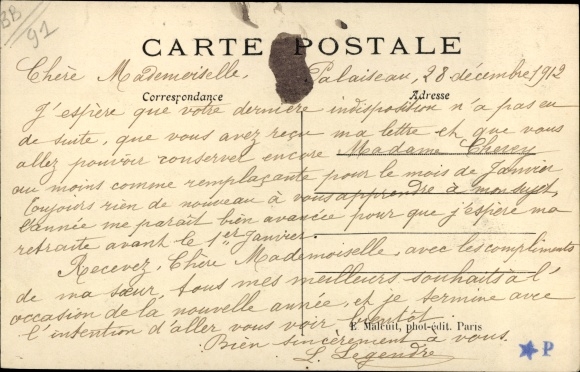 BB
91
CARTE POSTALE
Chère Mademoiselle, Palaiseau, 28 décembre 1912
Correspondance Adresse
J'espère que votre dernière indisposition n'a pas eu
de suite, que vous avez reçu ma lettre et que vous
allez pouvoir conserver encore Madame
au moins comme remplaçante pour le mois de Janvier
Toujours rien de nouveau à vous apprendre à mon sujet,
l'année me paraît bien avancée pour que j'espère ma
retraite avant le 1er Janvier.
Recevez, Chère Mademoiselle, avec les compliments
de ma sœur, tous mes meilleurs souhaits à l'
occasion de la nouvelle année, et je termine avec
l'intention d'aller vous voir bientôt.
E. Malcuit, phot-édit. Paris
Bien sincèrement à vous.
L. Legendre
P